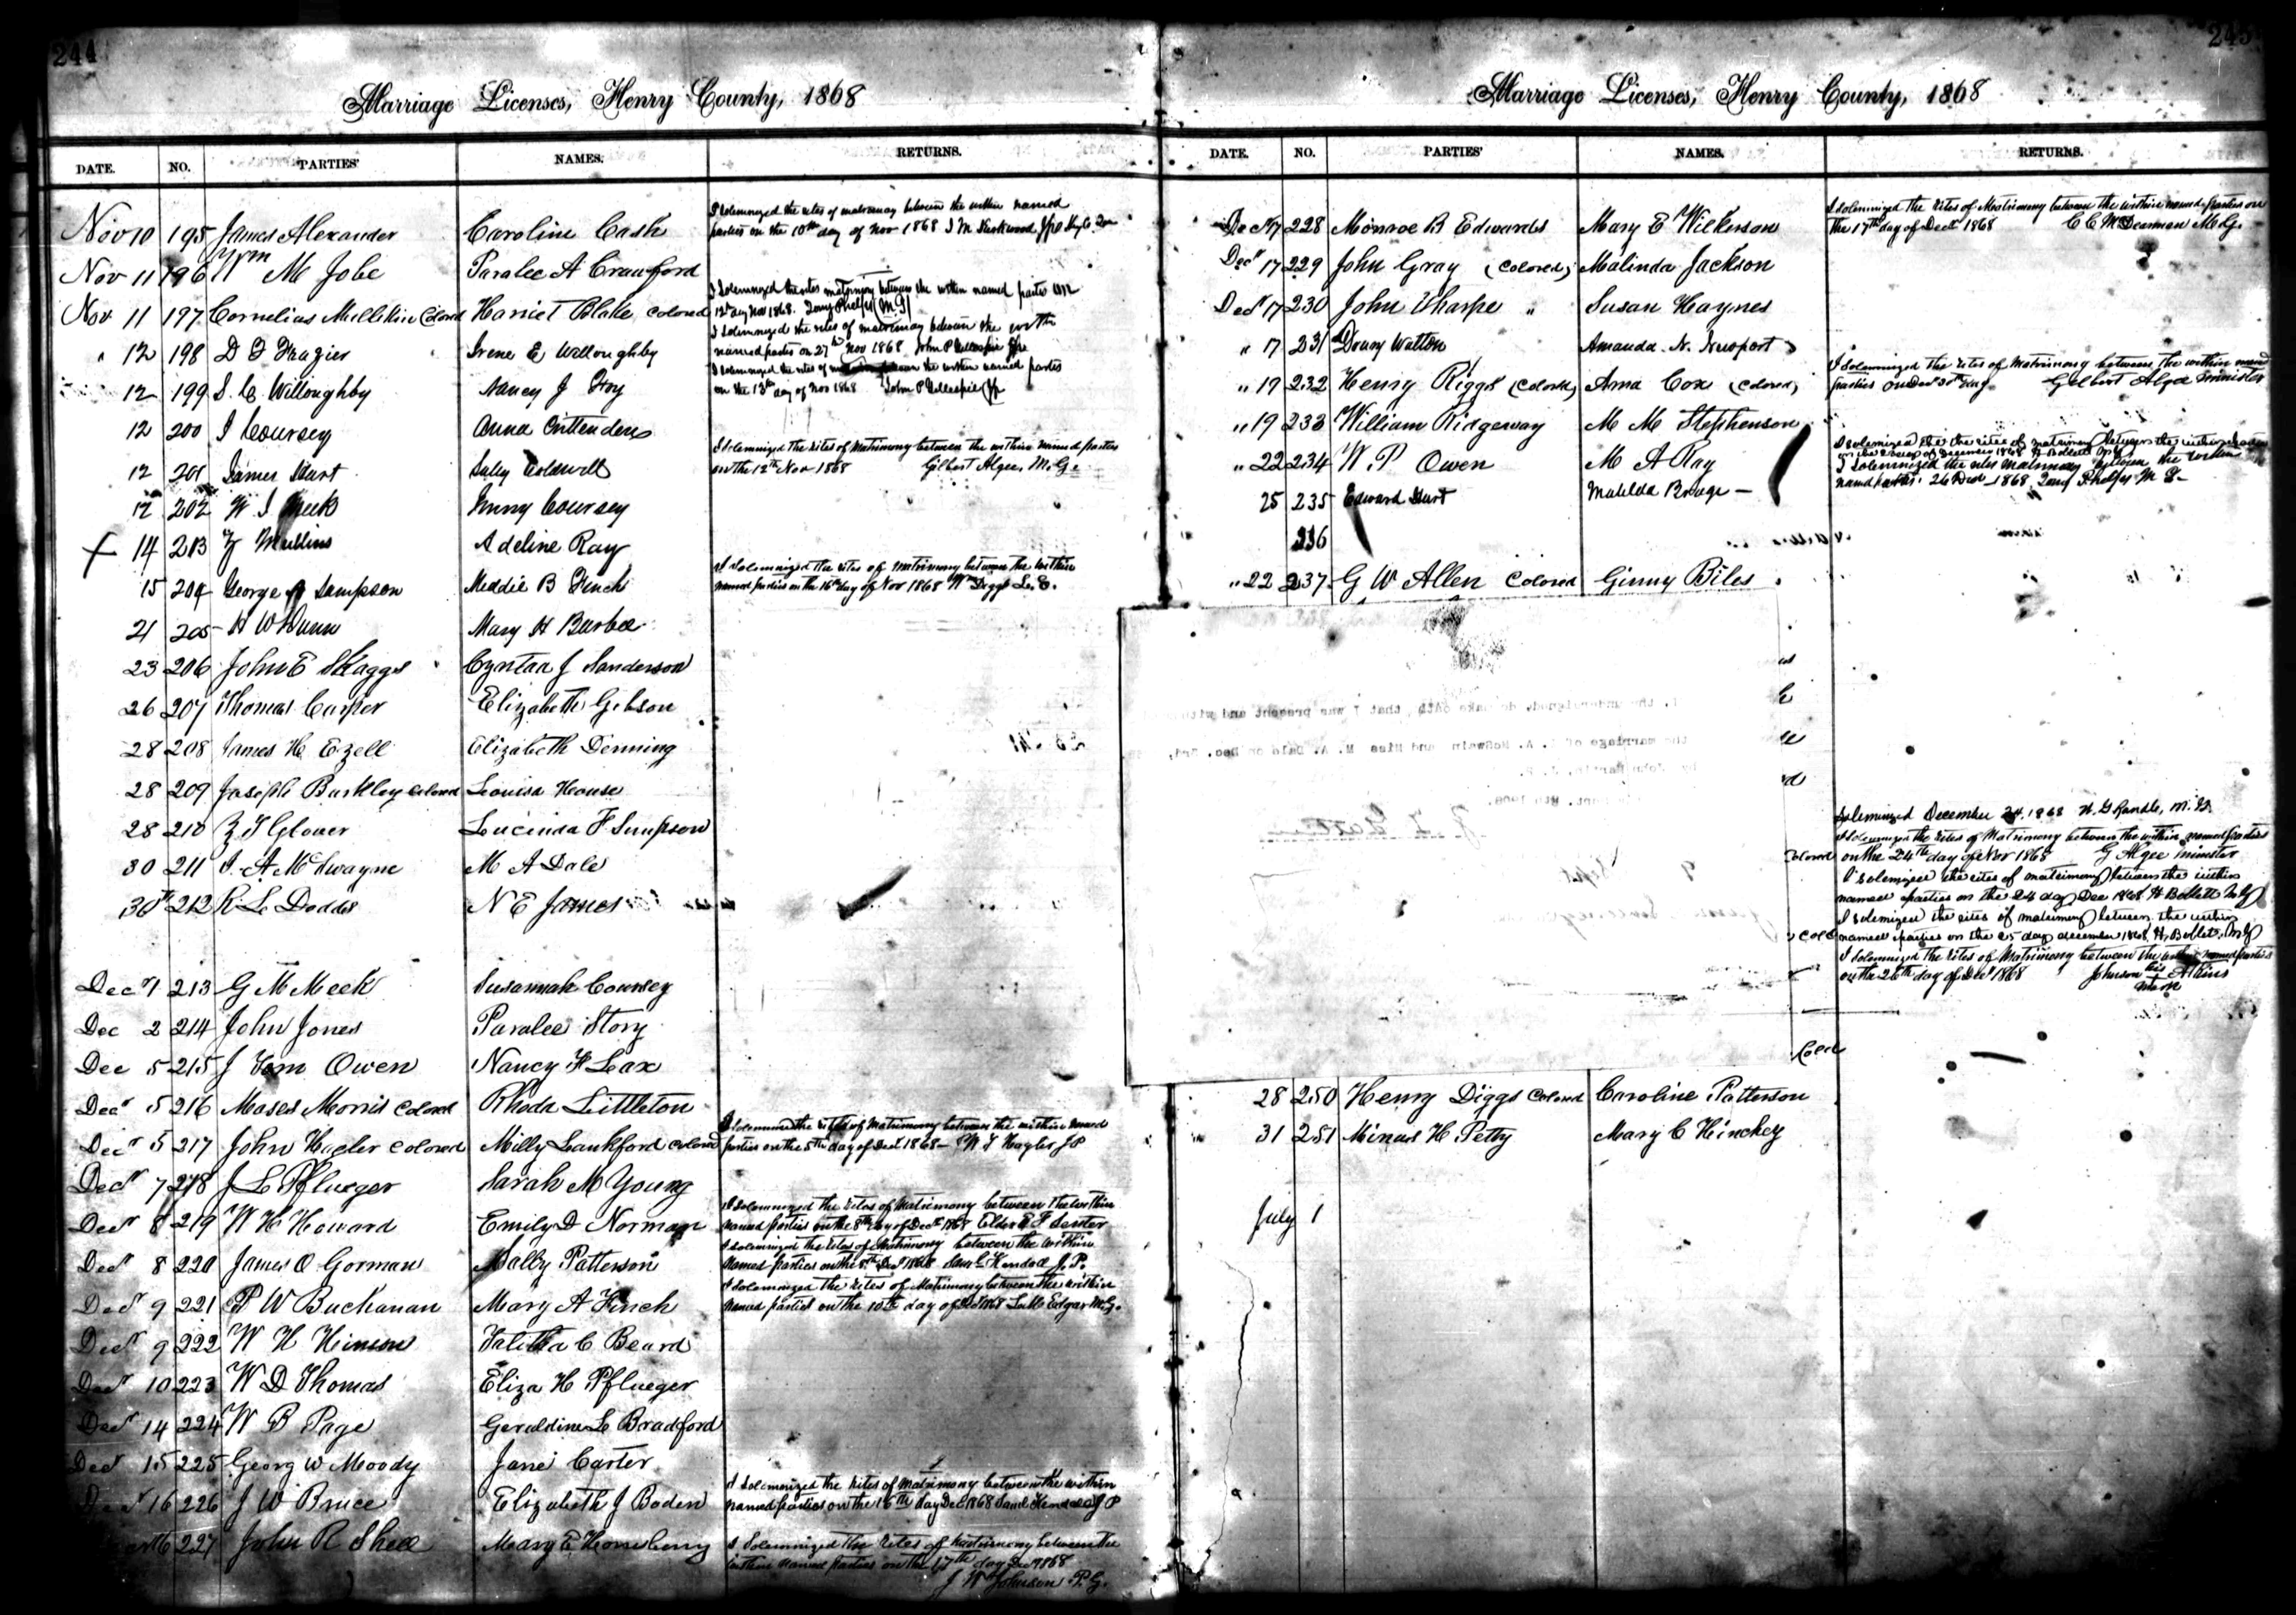 244
Marriage Licenses, Henry County, 1868
DATE. NO. PARTIES' NAMES. RETURNS.
Nov 10 195 James Alexander Caroline Cash I solemnized the rites of matrimony between the within named
parties on the 10th day of Nov 1868 J M Kirkwood
Nov 11 196 Wm M Jobe Paralee A Crawford
Nov 11 197 Cornelius Mullikin Colored Harriet Blake Colored I solemnized the rites matrimony between the within named parties on
12 day Nov 1868. Phelps (M.G)
" 12 198 D F Frazier Irene E Willoughby I solemnized the rites of matrimony between the within
named parties on 27th Nov 1868 John P Gillespie Jp
12 199 S. C. Willoughby Nancy J Foy I solemnized the rites of between the within named parties
on the 13th day of Nov 1868 John P Gillespie Jp
12 200 J Coursey Anna Crittendens
12 201 James Hart Suley Coldwell I solemnized the Rites of Matrimony between the within named parties
on the 12th Nov 1868 Gilbert Algee, M.G.
12 202 W J Meek Coursey
14 203 Mullins Adeline Ray
15 204 George Sampson Meddie B Finch I solemnized the rites of matrimony between the within
named parties on the 16th day of Nov 1868 Wm Diggs L. E.
21 205 H W Dunn Mary H Burbee
23 206 John E Skaggs Cyntaa J Sanderson
26 207 Thomas Carter Elizabeth Gibson
28 208 James H Ezell Elizabeth Denning
28 209 Joseph Burkley colored Louisa House
28 210 Z T Glover Lucinda F Simpson
30 211 J. A McSwayne M A Dale
30th 212 R L Dodds N E James
Dec 1 213 G M Meek Susannah Coursey
Dec 2 214 John Jones Paralee Story
Dec 5 215 J Tom Owen Nancy F Lax
Decr 5 216 Moses Morris Colored Rhoda Littleton
Decr 5 217 John Hagler Colored Milly Lankford Colored I solemnized the rites of Matrimony between the within named
parties on the 5th day of Decr 1868 - W F Hagler J P
Decr 7 218 J L Pflueger Sarah M Young
Decr 8 219 W H Howard Emily D Norman I solemnized the rites of Matrimony between the within
named parties on the 8th day of Decr 1868 Elder E F Senter
Decr 8 220 James O Gorman Sally Patterson I solemnized the rites of Matrimony between the within
named parties on the 8th Decr 1868 Saml Kendall J. P.
Decr 9 221 P W Buchanan Mary A Finch I solemnized the rites of Matrimony between the within
named parties on the 10th day of Dec 1868 Edgar M.G.
Decr 9 222 W H Hinson Talitha C Beard
Decr 10 223 W D Thomas Eliza H Pflueger
Decr 14 224 W B Page Geraldine L Bradford
Decr 15 225 Georg W Moody Jane Carter
Decr 16 226 J W Bruce Elizabeth J Boden I solemnized the Rites of Matrimony between the within
named parties on the 16th day Dec 1868 Saml Kendall J P
16 227 John R Shell Mary E Hornsberry I Solemnized the Rites of Matrimony between the
within named parties on the 17th day Dec 1868
J W Johnson P. G.
245
Marriage Licenses, Henry County, 1868
DATE. NO. PARTIES' NAMES. RETURNS.
Dec 17 228 Monroe B Edwards Mary E Wilkerson I solemnized the Rites of Matrimony between the within named parties on
the 17th day of Decr 1868 C C McDearman M.G.
Decr 17 229 John Gray (Colored) Malinda Jackson
Decr 17 230 John Tharpe " Susan Haynes
" 17 231 Drury Watton Amanda N. Newport
" 19 232 Henry Riggs (Colored) Anna Cox (Colored) I solemnized the Rites of Matrimony between the within named
parties on Decr 20th day Gilbert Algee Minister
" 19 233 William Ridgeway M M Stephenson
" 22 234 W. P Owen M A Ray I solemized the rites of matrimony between the within
25 235 Edward Hart Matilda Bruage I solemnized the rites Matrimony between the within
named parties. 26 Decr 1868 Phelps M G
236
" 22 237 G W Allen Colored Ginny Biles
I, the undersigned, do make oath, that I was present and
the marriage of J. A. McSwain and Miss M. A. Dale on Dec. 3rd,
by John Martin, J. P.
Solemnized December 24, 1868 H. G Randle, M. G.
I solemnized the Rites of Matrimony between the within named parties
Colored on the 24th day of Nov 1868 G Algee Minister
I solemized the rites of matrimony between the within
named parties on the 24 day Dec 1868 H Bollett M G
I solemized the rites of matrimony between the within
Cold named parties on the 25 day december 1868, H. Bollett, M G
I solemnized the Rites of Matrimony between the within named parties
on the 26th day of Decr 1868 Johnson his Atkins
mark
Cold
28 250 Henry Diggs Colored Caroline Patterson
31 251 Minus H. Petty Mary C Hinchey
July 1